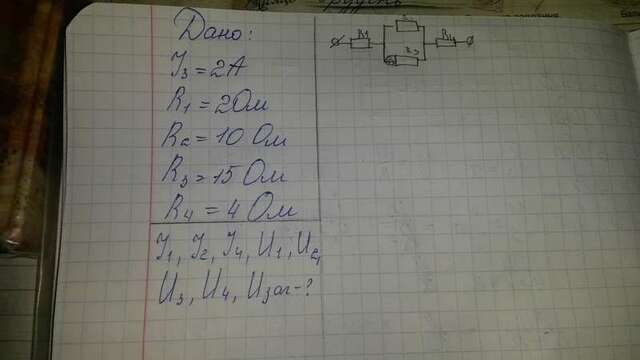 Дано:
I₃ = 2А
R₁ = 2Ом
R₂ = 10 Ом
R₃ = 15 Ом
R₄ = 4 Ом
I₁, I₂, I₄, U₁, U₂,
U₃, U₄, Uзаг = ?
R₁
R₃
R₄